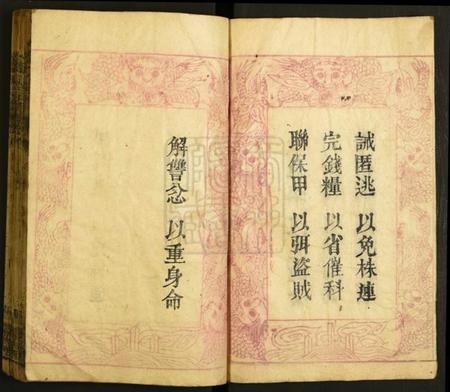 誡匿逃 以免株連
完錢糧 以省催科
聯保甲 以弭盜賊
解讐忿 以重身命